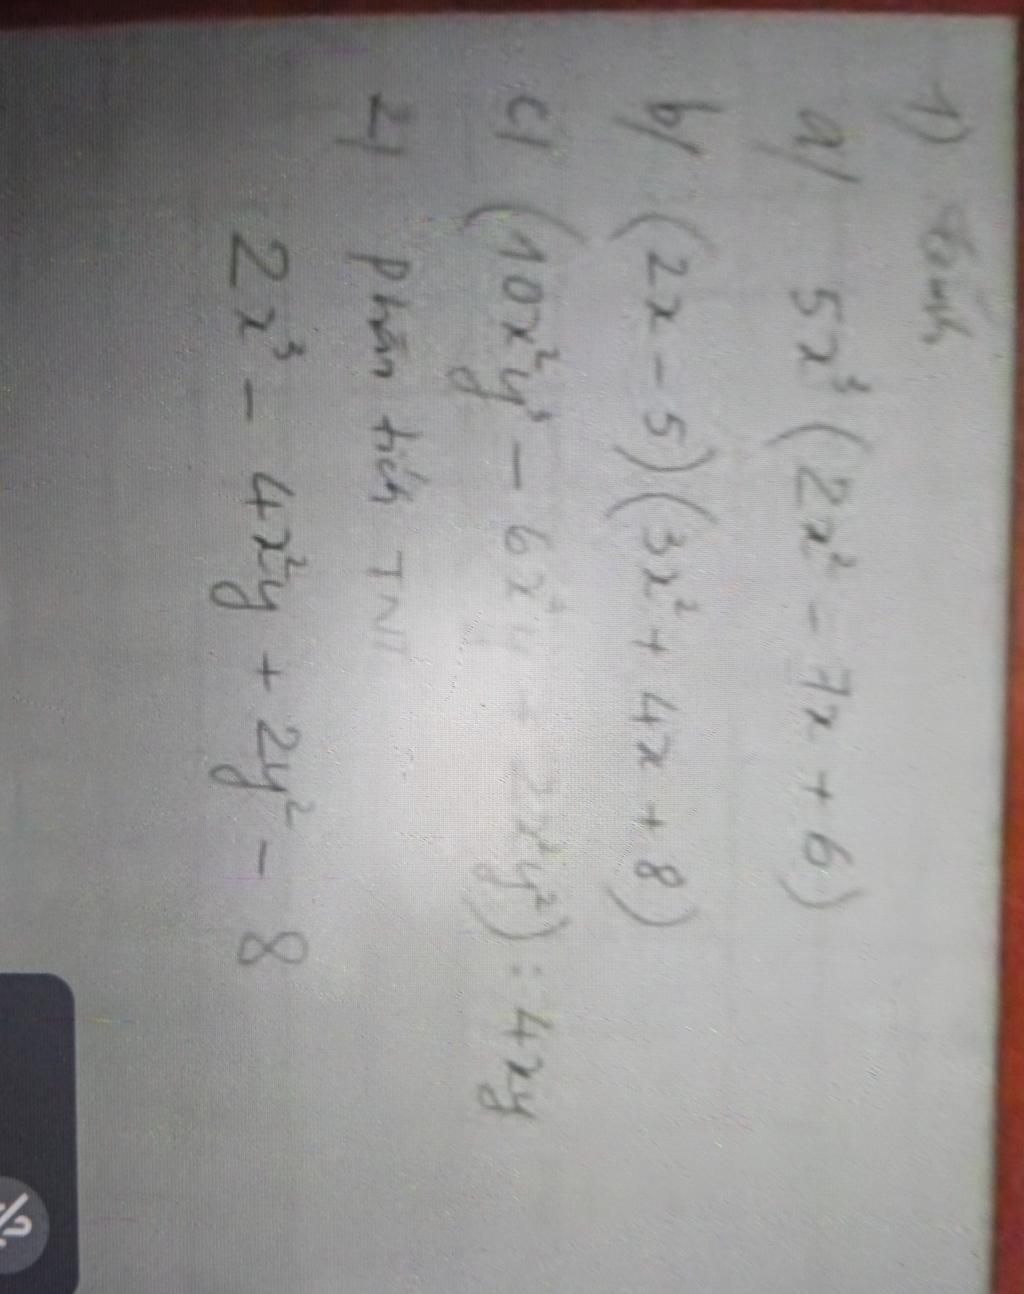 1) Tính
a/ 5x³ (2x² - 7x + 6)
b/ (2x - 5)(3x² + 4x + 8)
c/ (10x²y³ - 6x³y + 2x²y²) : 4xy
2/ phân tích TNT
2x³ - 4x²y + 2y² - 8